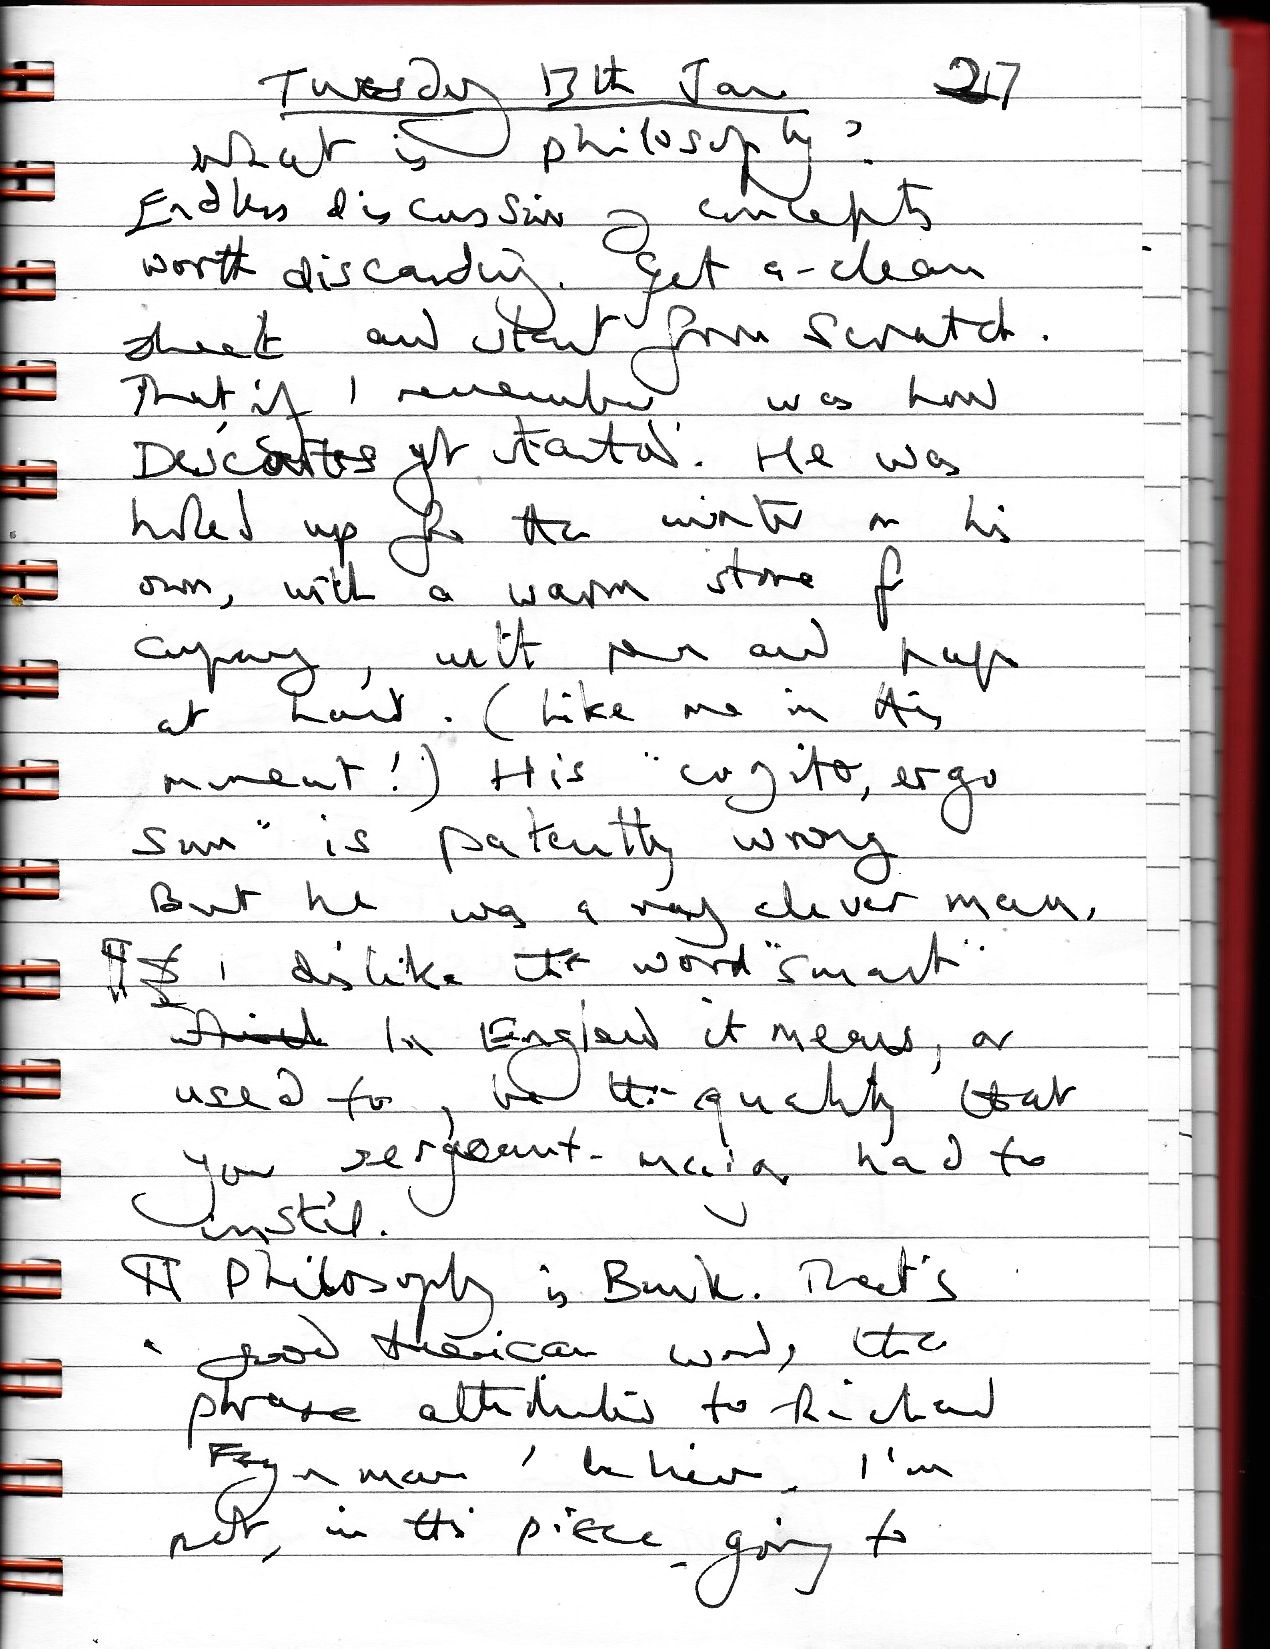 Tuesday 13th Jan 217
What is philosophy?
Endless discussion of concepts
worth discarding. Get a clean
sheet and start from scratch.
That if I remember was how
Descartes got started. He was
holed up for the winter on his
own, with a warm stove f
company, with pen and paper
at hand. (Like me in this
moment!) His "cogito, ergo
sum" is patently wrong
But he was a very clever man.
¶ I dislike the word "smart"
In England it means, or
used to, be the quality that
your sergeant-major had to
instil.
¶ Philosophy is Bunk. That's
a good American word, the
phrase attributed to Richard
Feynman I believe. I'm
not, in this piece going to